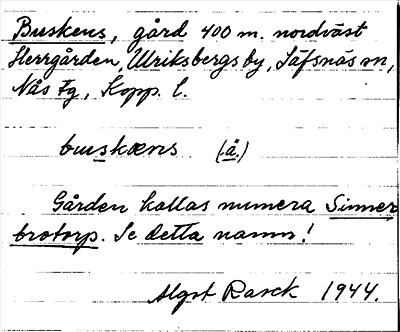 Buskens, gård 400 m. nordväst
Herrgården, Ulriksbergs by, Säfsnäs sn,
Nås fg, Kopp. l.
buskæns (å.)
Gården kallas numera Sinner
brotorp. Se detta namn!
Algot Rasck 1944.